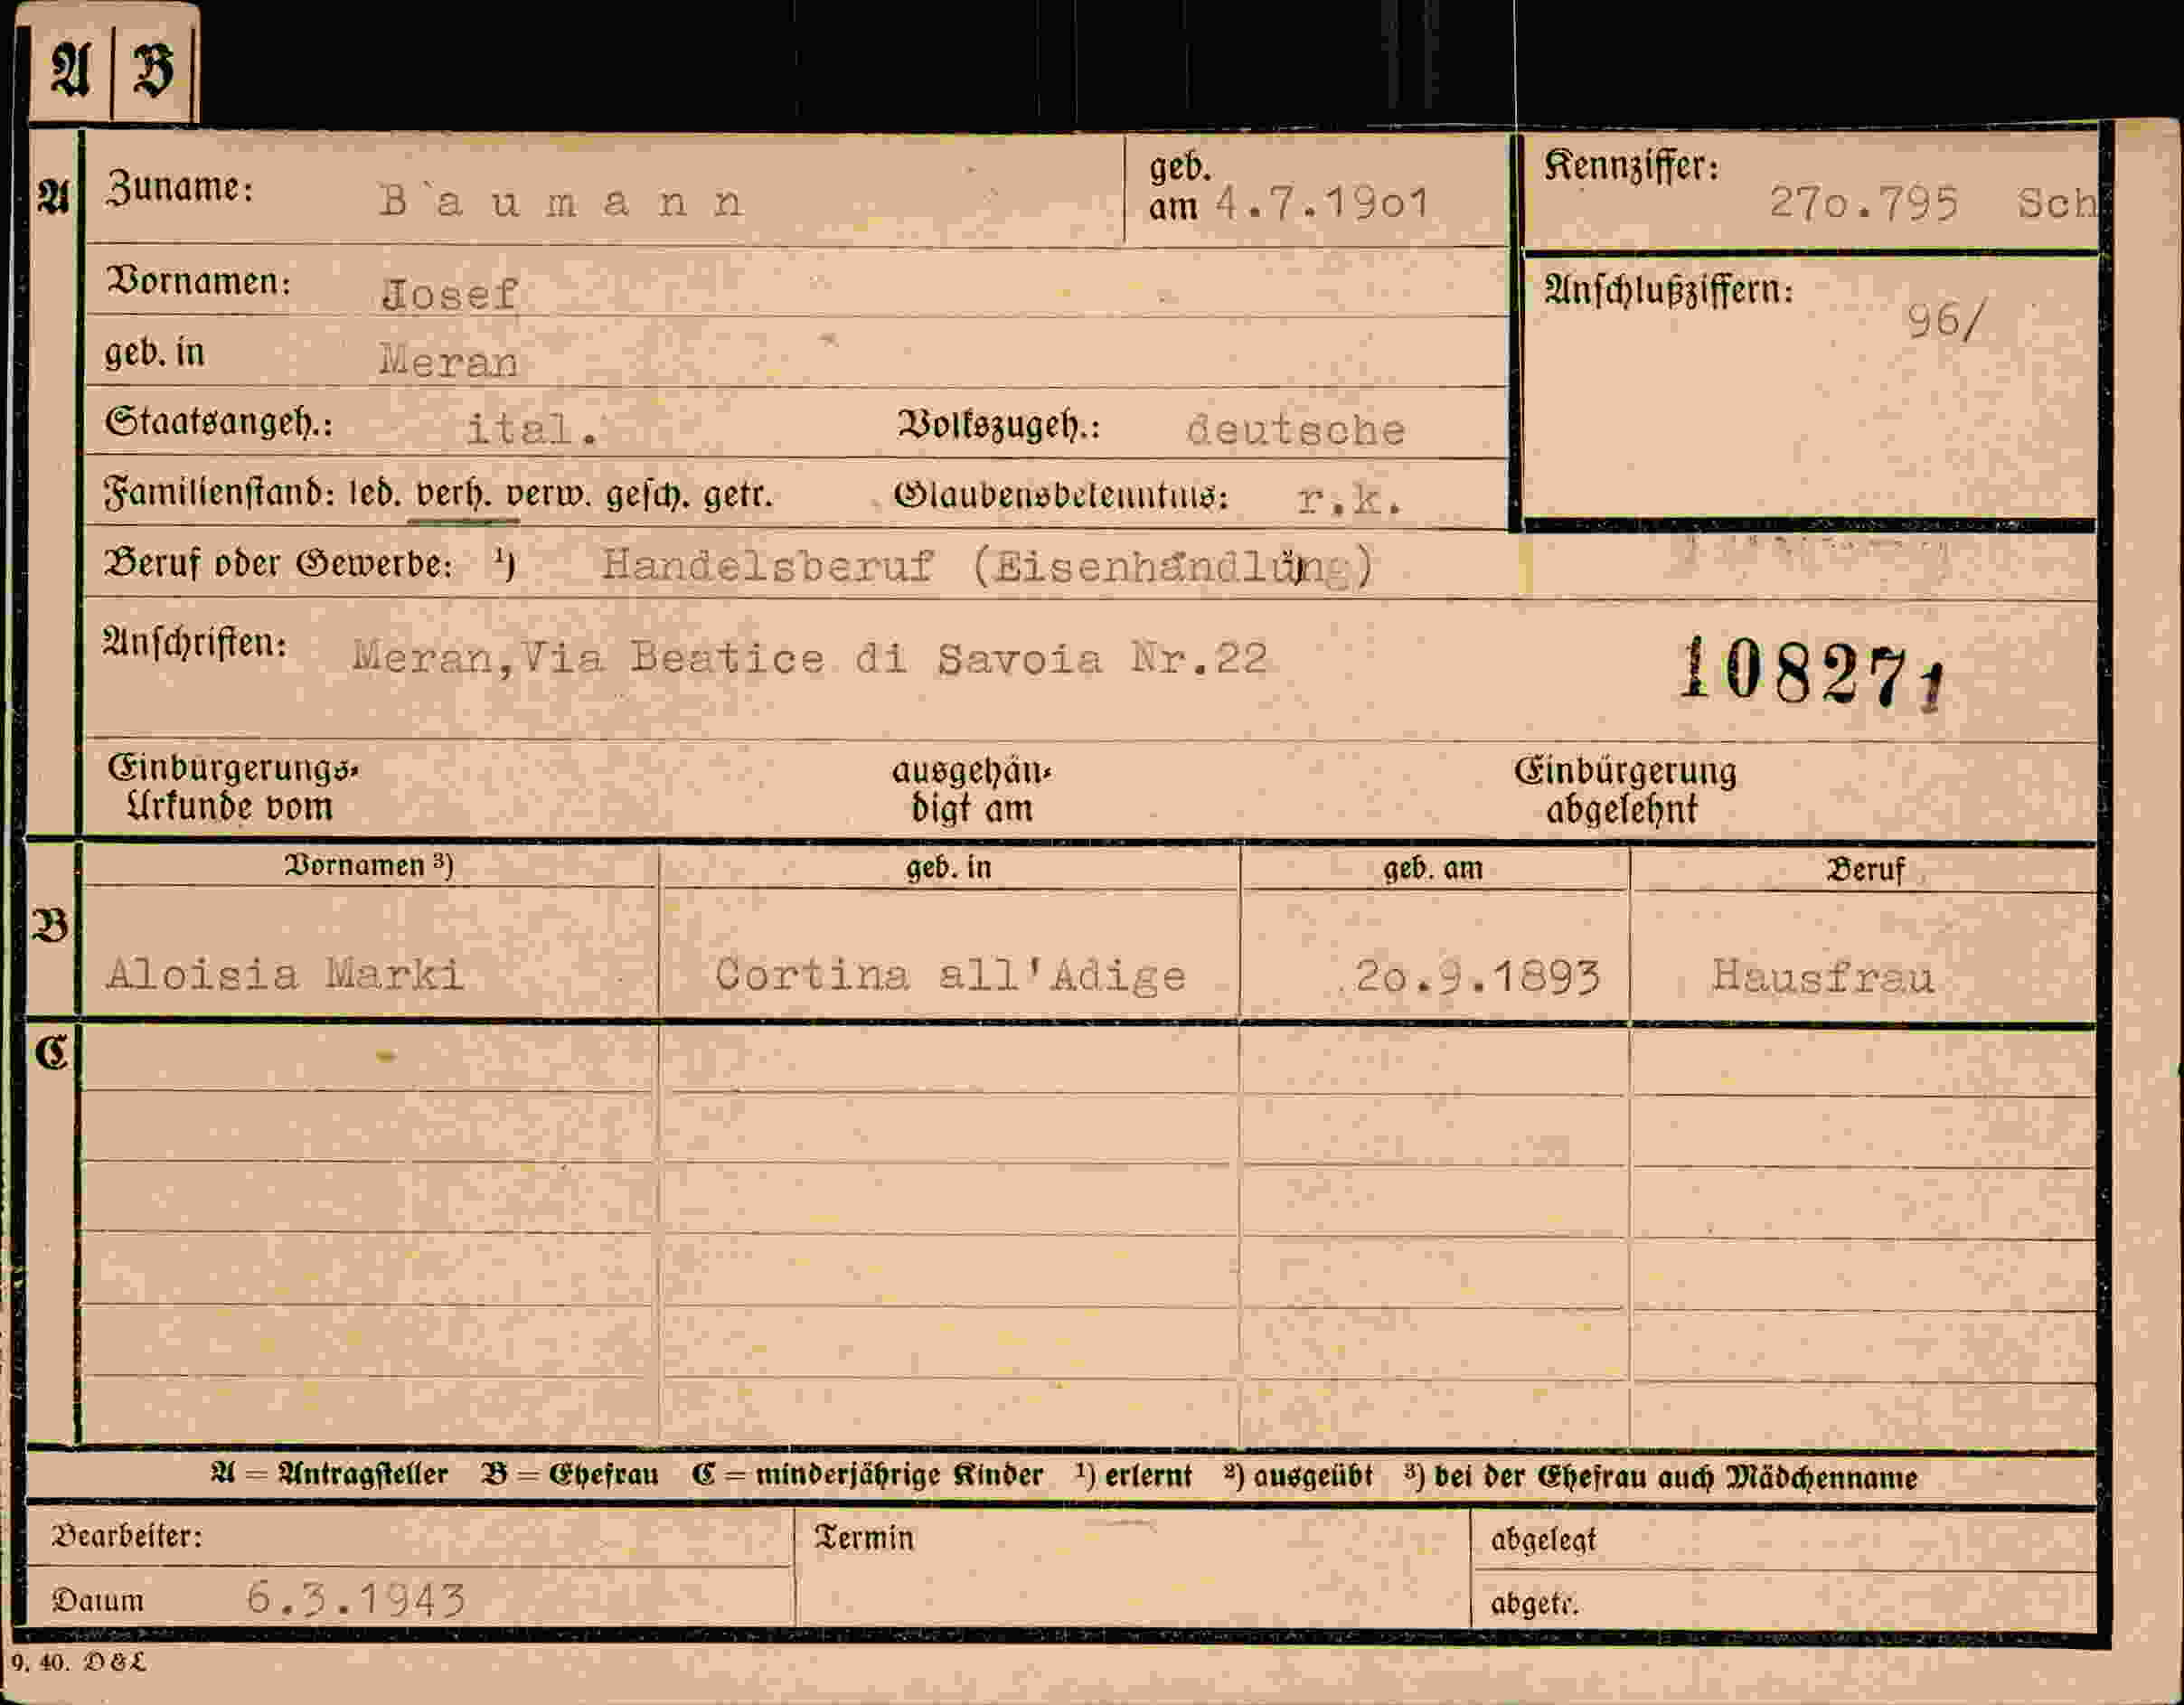 A B
A Zuname: Baumann geb. am 4.7.19o1 Kennziffer: 27o.795 Sch
Vornamen: Josef Anschlußziffern: 96/
geb. in Meran
Staatsangeh.: ital. Volkszugeh.: deutsche
Familienstand: led. verh. verw. gesch. getr. Glaubensbekenntnis: r.k.
Beruf oder Gewerbe: ¹) Handelsberuf (Eisenhandlung)
Anschriften: Meran,Via Beatice di Savoia Nr.22 108271
Einbürgerungs- ausgehän- Einbürgerung
Urkunde vom digt am abgelehnt
Vornamen ³) geb. in geb. am Beruf
B
Aloisia Marki Cortina all'Adige 2o.9.1893 Hausfrau
C
A = Antragsteller B = Ehefrau C = minderjährige Kinder ¹) erlernt ²) ausgeübt ³) bei der Ehefrau auch Mädchenname
Bearbeiter: Termin abgelegt
Datum 6.3.1943 abgetr.
9. 40. D&L